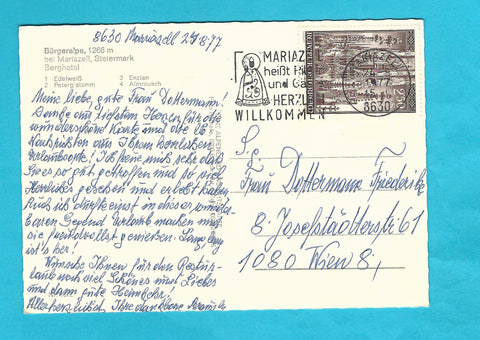 8630 Mariazell 24.8.77
Bürgeralpe, 1266 m
bei Mariazell, Steiermark
Berghotel
1 Edelweiß 3 Enzian
2 Petergstamm 4 Almrausch
Meine liebe, gute Frau Dottermann!
Danke aus tiefstem Herzen für die
wunderschöne Karte und die lb.
Nachrichten aus Ihrem herrlichen
Urlaubsort! Ich freue mich sehr daß
Sie es so gut getroffen und so viel
Herrliches gesehen und erlebt haben
Auch ich durfte einst in dieser wunder-
baren Gegend Urlaub machen und
sie genießen. Lang lang
ist's her!
Wünsche Ihnen für den Resturlaub
noch viel Schönes und Liebes
und dann gute Heimkehr!
Allerherzlichst Ihre dankbare
MARIAZELL
heißt
und
HERZL
WILLKOMMEN
8630
S. g.
Frau Dottermann Friederike
8. Josefstädterstr. 61
1080 Wien 8,